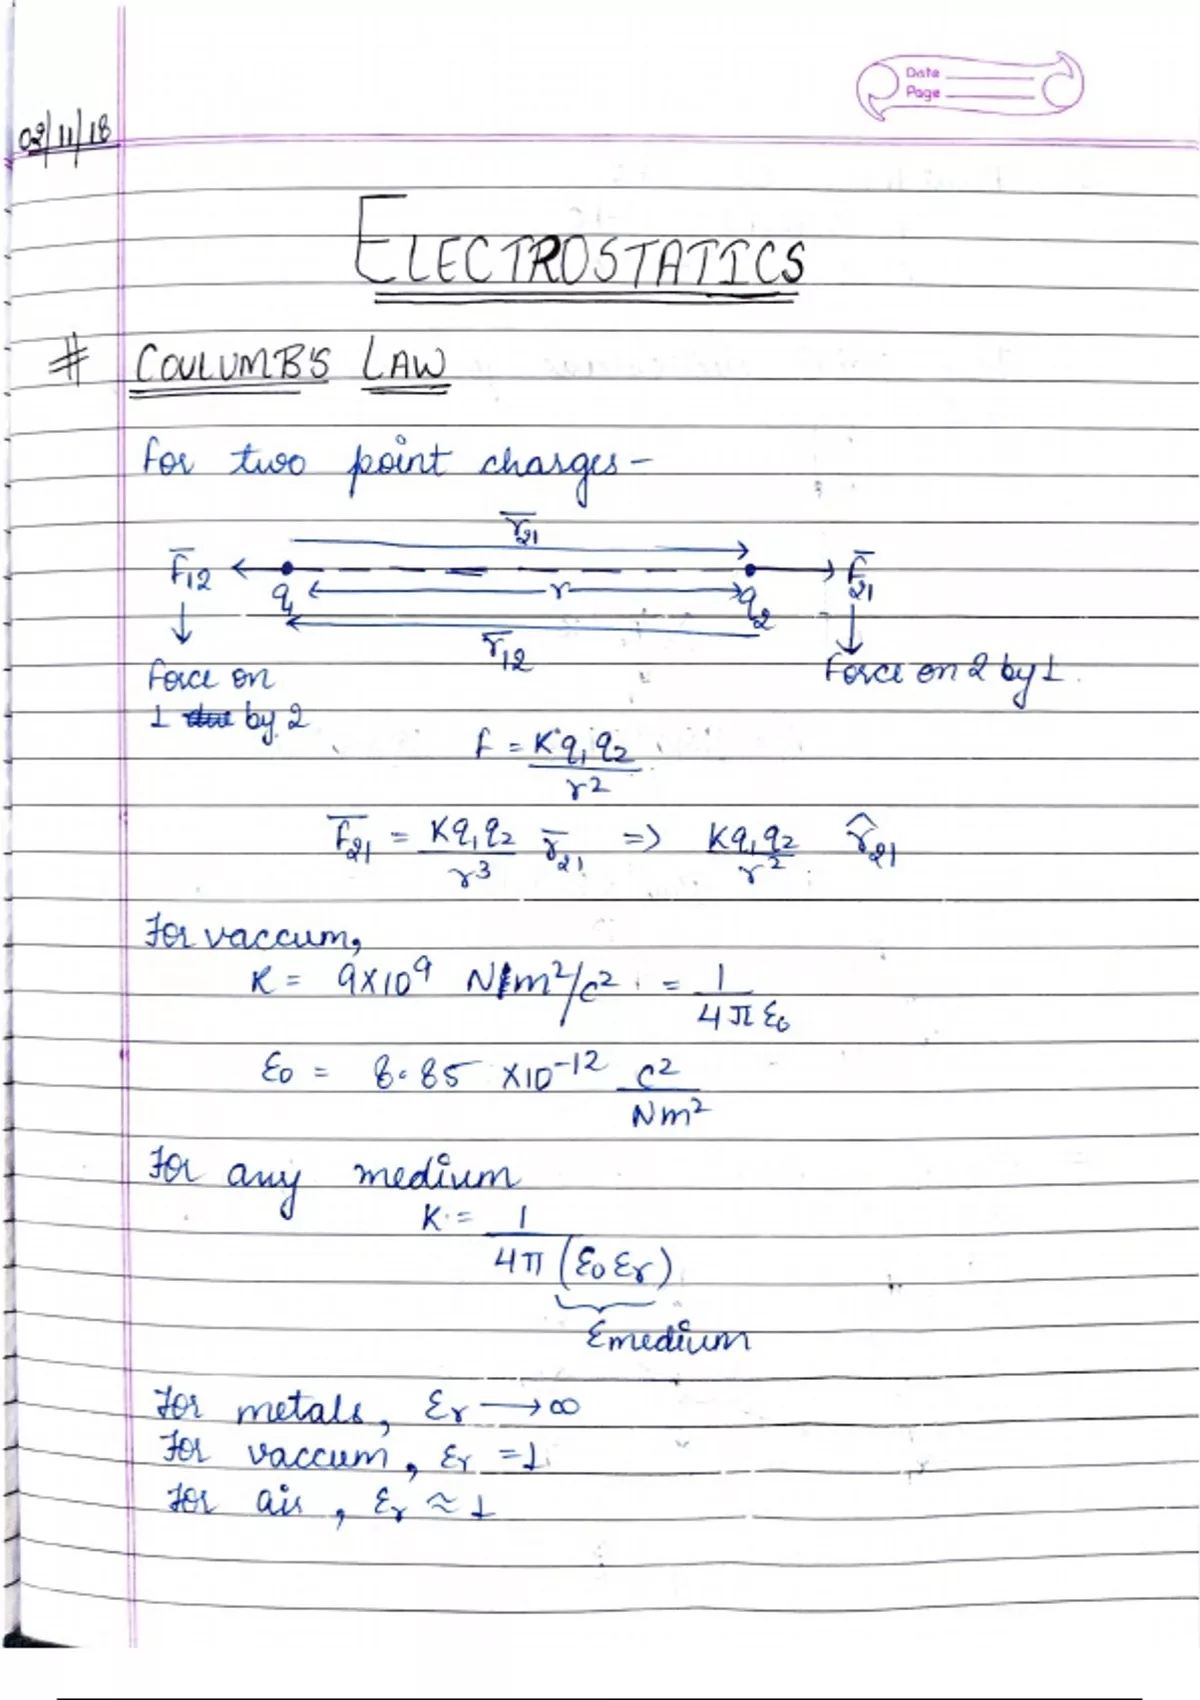 Date
Page
02/11/18
ELECTROSTATICS
# COULUMB'S LAW
For two point charges -
r̅21
F̅12 q1 r q2 F̅21
r̅12
Force on
1 by 2
Force on 2 by 1.
F = Kq1q2/r²
F̅21 = Kq1q2/r³ r̅21 => Kq1q2/r² r̂21
For vaccum,
K = 9×10⁹ Nm²/c² = 1/4πε0
ε0 = 8.85 ×10⁻¹² c²/Nm²
For any medium
K = 1/4π(ε0εr)
εmedium
For metals, εr → ∞
For vaccum, εr = 1
For air, εr ≈ 1